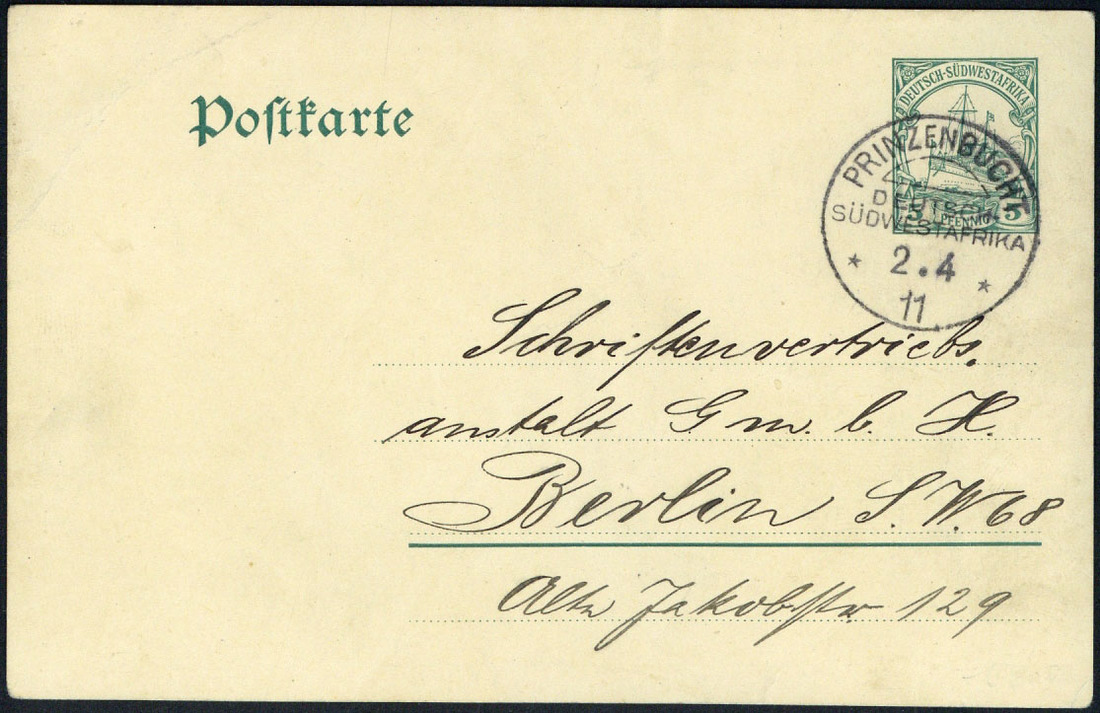 Postkarte
DEUTSCH-SÜDWESTAFRIKA
5 PFENNIG 5
PRINZENBUCHT
DEUTSCH-
SÜDWESTAFRIKA
* 2.4 *
11
Schriftenvertriebs,
anstalt G m. b. H.
Berlin S. W. 68
Alte Jakobstr 129